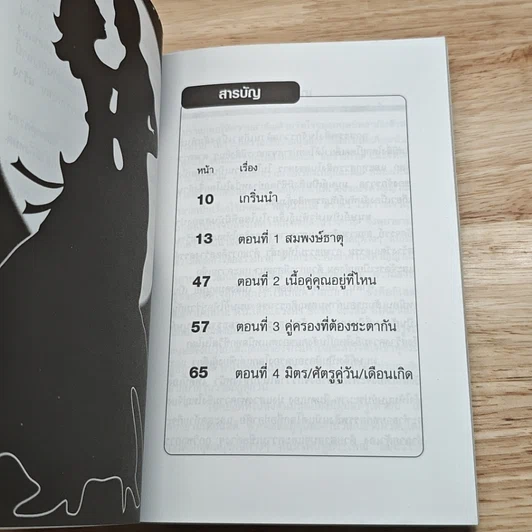 สารบัญ
หน้า เรื่อง
10 เกริ่นนำ
13 ตอนที่ 1 สมพงษ์ธาตุ
47 ตอนที่ 2 เนื้อคู่คุณอยู่ที่ไหน
57 ตอนที่ 3 คู่ครองที่ต้องชะตากัน
65 ตอนที่ 4 มิตร/ศัตรูคู่วัน/เดือนเกิด